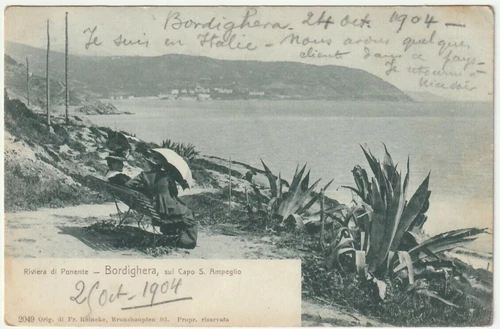 Bordighera 24 oct. 1904 —
Je suis en Italie – Nous avons quelques
client dans ce pays –
Je
Riviera di Ponente – Bordighera, sul Capo S. Ampeglio
2 Oct - 1904
2049 Orig. di Fr. Reineke, Brunshaupten 03. Propr. riservata